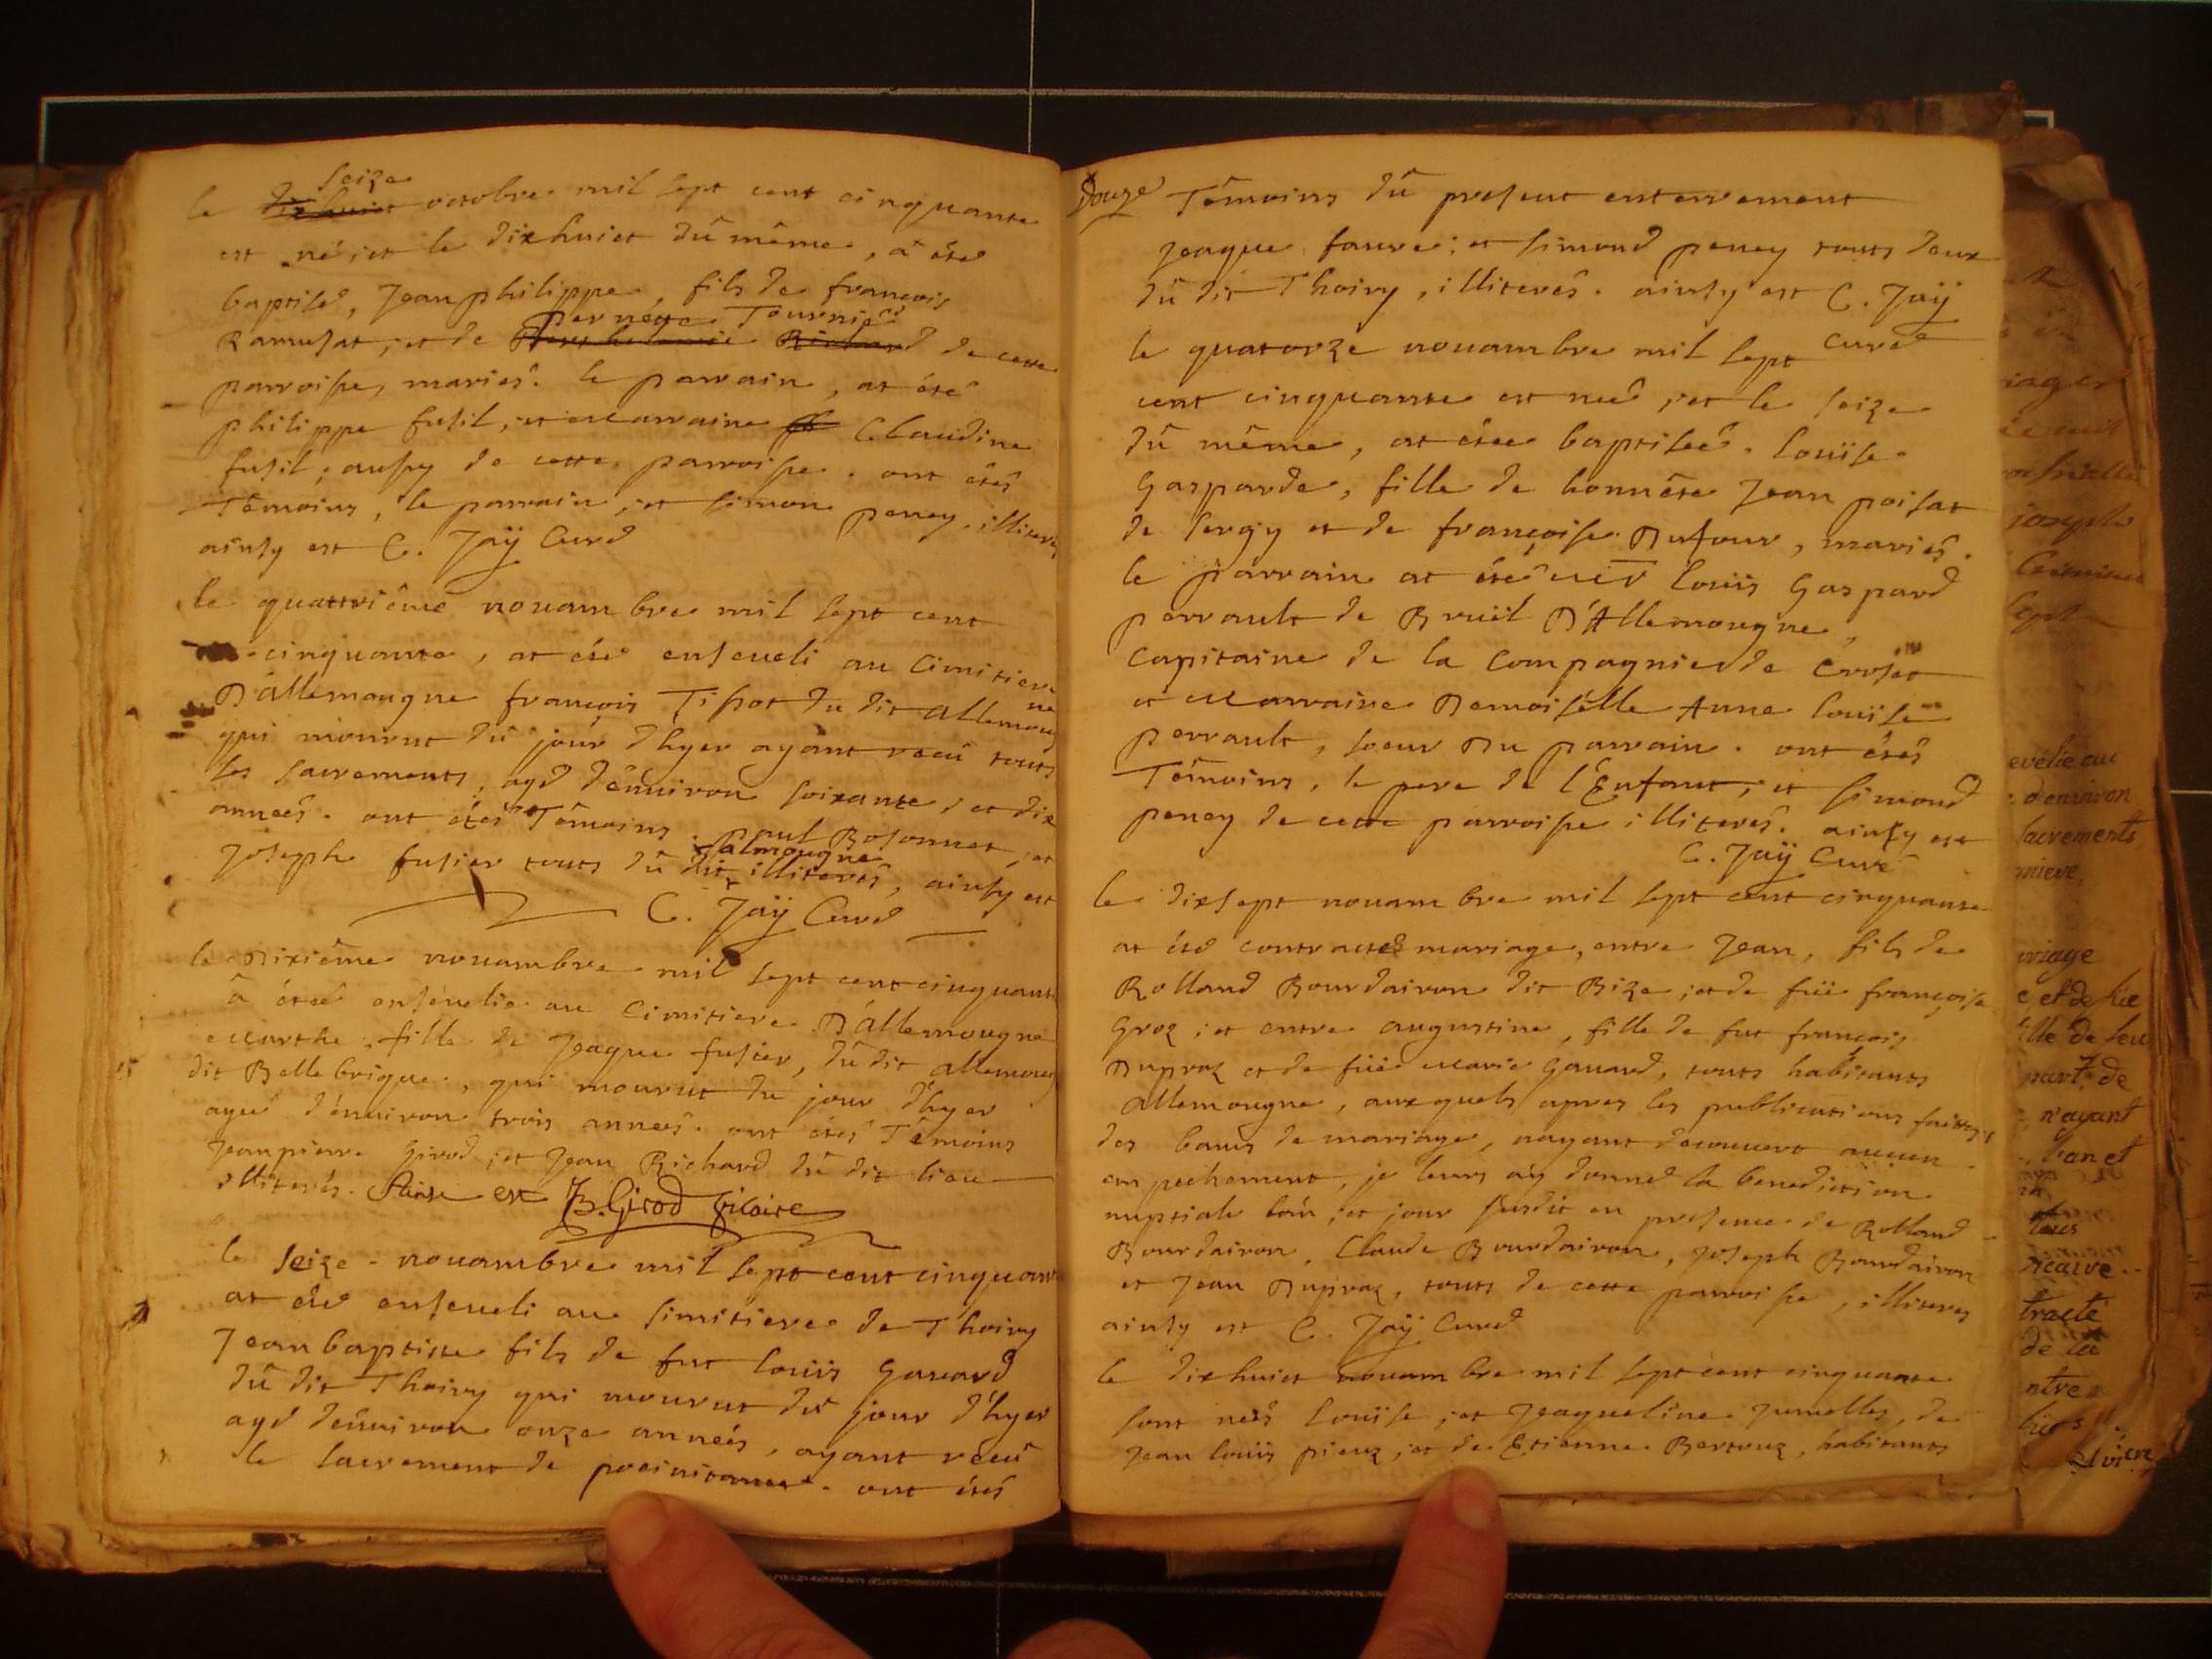 seize
le dixhuict octobre mil sept cent cinquante
est né, et le dixhuict dû même, at été
baptisé, Jean philippe, fils de françois
pernette Tournié
Ramusat, et de d de cette
parroisse, mariés. le parrain, at été
philippe fusil, et marraine Claudine
fusil, aussy de cette parroisse. ont étés
Témoins, le parrain, et simon peney, illiterés
ainsy est C. Jaÿ Curé
le quattriême nouambre mil sept cent
cinquante, at été enseueli au Cimitiere
D'allemougne françois Tissot du dit allemougne
qui mourut dû jour d'hyer ayant recû touts
les sacrements, agé d'énuiron soixante, et dix
années. ont étés Têmoins. paul Bosonnet, et
d'almougne
Joseph fusier touts dû dit illiterés, ainsy est
C. Jaÿ Curé
le Dixiême nouambre mil sept cent cinquante
à été enséuelie au Cimitiere D'allemougne
marthe, fille de Jeaque fusier, dû dit allemoug
dit Belle brigue, qui mourut du jour d'hyer
agée d'énuiron trois années. ont étés Têmoins
Jean pierre Girod, et Jean Richard dû dit lieu
illiterés. Ainse est JB. Girod Vicaire
le seize nouambre mil sept cent cinquante
at été enseueli au simitiere de Thoiry
Jean baptiste fils de fut louis Gauard
dû dit Thoiry qui mourut du jour d'hyer
agé d'énuiron onze années, ayant réeû
le sacrement de poeinitance. ont étés
Douze Têmoins dû present enterrement
Jeaque faure; et simond peney touts deux
dû dit Thoiry, illiterés. ainsy est C. Jaÿ
Curé
le quatorze nouambre mil sept
cent cinquante est née, et le seize
dû même, at étée baptisée. louïse
Gasparde, fille de honnête Jean poisat
de sergy et de françoise Dufour, mariés.
le parrain at été louis Gaspard
perrault de Bruël D'Allemougne,
Capitaine de la Compagnie de Crosét
et marraine Demoisélle Anne louïse
perrault, soeur Du parrain. ont étés
Témoins, le pere de l'Enfant, et simond
peney de cette parroisse illiterés. ainsy est
C. Jaÿ Curé
le dixsept nouambre mil sept cent cinquante
at été contracté mariage, entre Jean, fils de
Rolland Bourdairon dit Bize, et de füe françoise
Groz, et entre augustine, fille de fut françois
Dupraz et de füe marie Gauard, touts habitants
allemougne, auxquels apres les publications faittes
des bancs de mariage, nayant decouuert aucun
empechement, je leurs aÿ donné la benediction
nuptiale l'an, et jour susdit en presence de Rolland
Bourdairon, Claude Bourdairon, Joseph Bourdairon
et Jean Dupraz, touts de cette parroisse, illiteres
ainsy est C. Jaÿ Curé
le dixhuict nouambre mil sept cent cinquante
sont neés louïse, et Jeaqueline Jumelles, de
Jean louis pieuz, et de Etienne Bertouz, habitants
evelie au
d'environ
sacrements
mieve
uriage
e et de füe
ille de feu
part, de
n'ayant
ban et
vicaire
tracté
de la
ntre